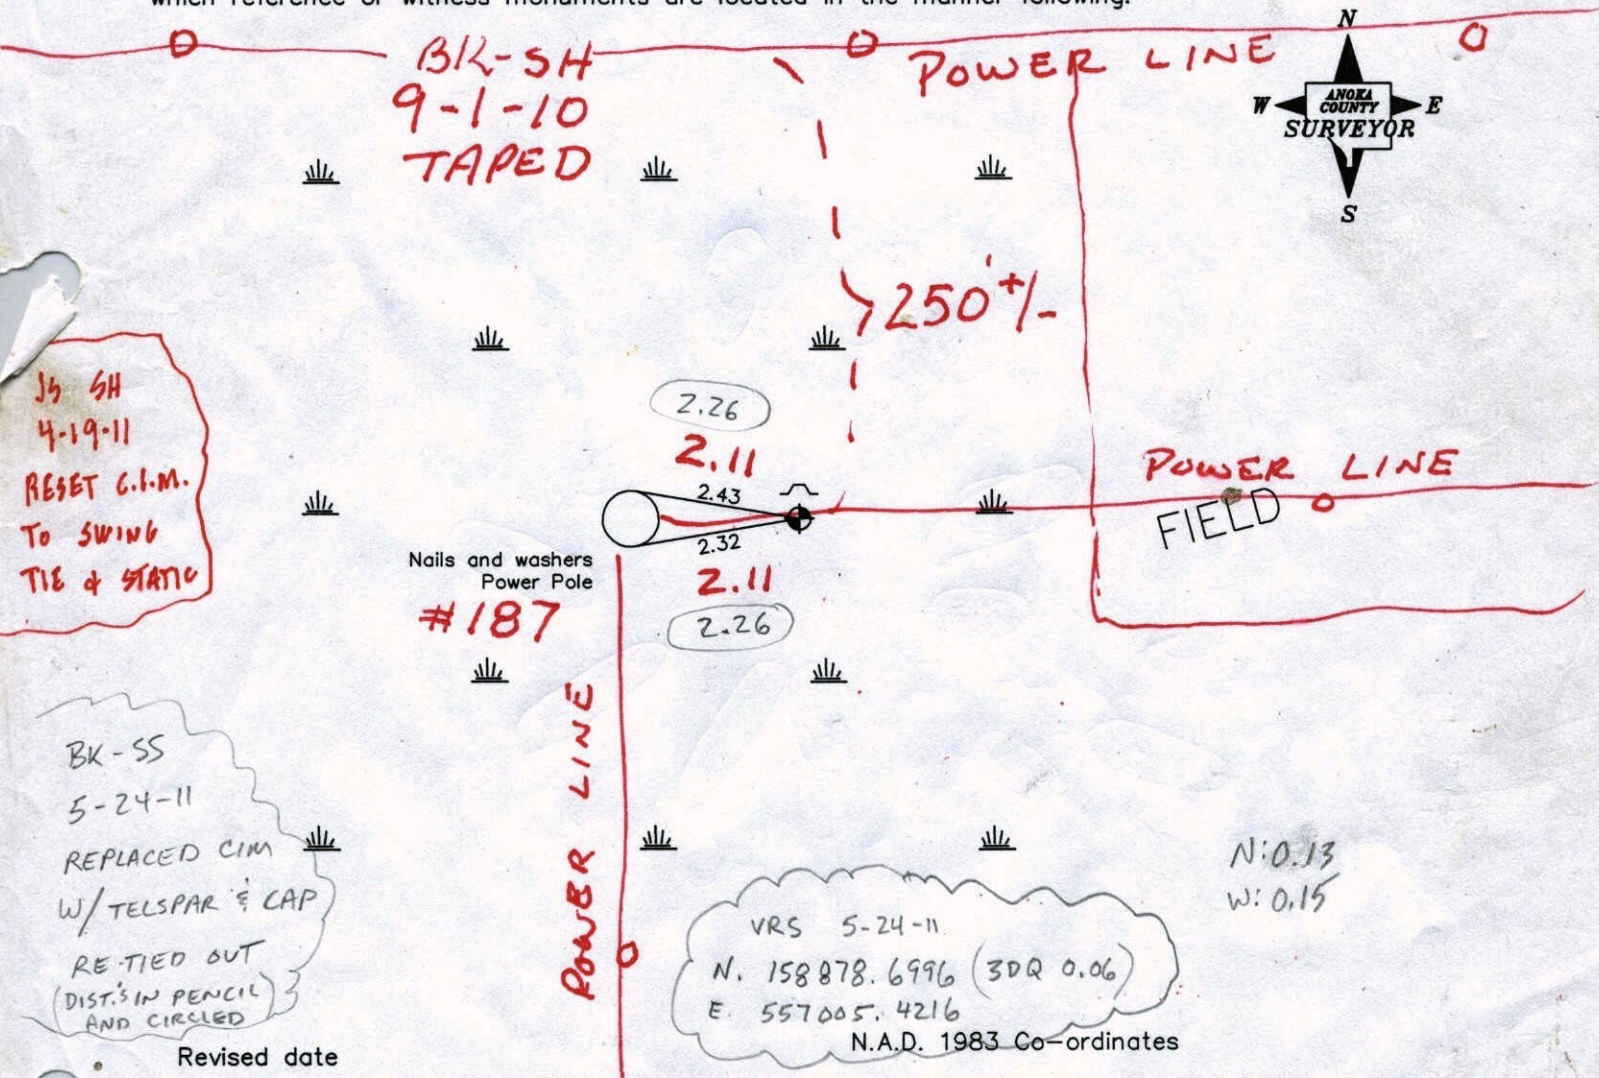 which reference or witness monuments are located in the manner following:
BK-SH
9-1-10
TAPED
POWER LINE
N
W
ANOKA
COUNTY
E
SURVEYOR
S
250' +/-
JS SH
4-19-11
RESET C.I.M.
TO SWING
TIE & STATIC
2.26
2.11
2.43
2.32
2.11
2.26
POWER LINE
FIELD
Nails and washers
Power Pole
#187
POWER LINE
BK-SS
5-24-11
REPLACED CIM
W/TELSPAR & CAP
RE-TIED OUT
(DIST.'S IN PENCIL
AND CIRCLED)
N: 0.13
W: 0.15
VRS 5-24-11
N. 158878.6996 (3DQ 0.06)
E. 557005.4216
N.A.D. 1983 Co-ordinates
Revised date